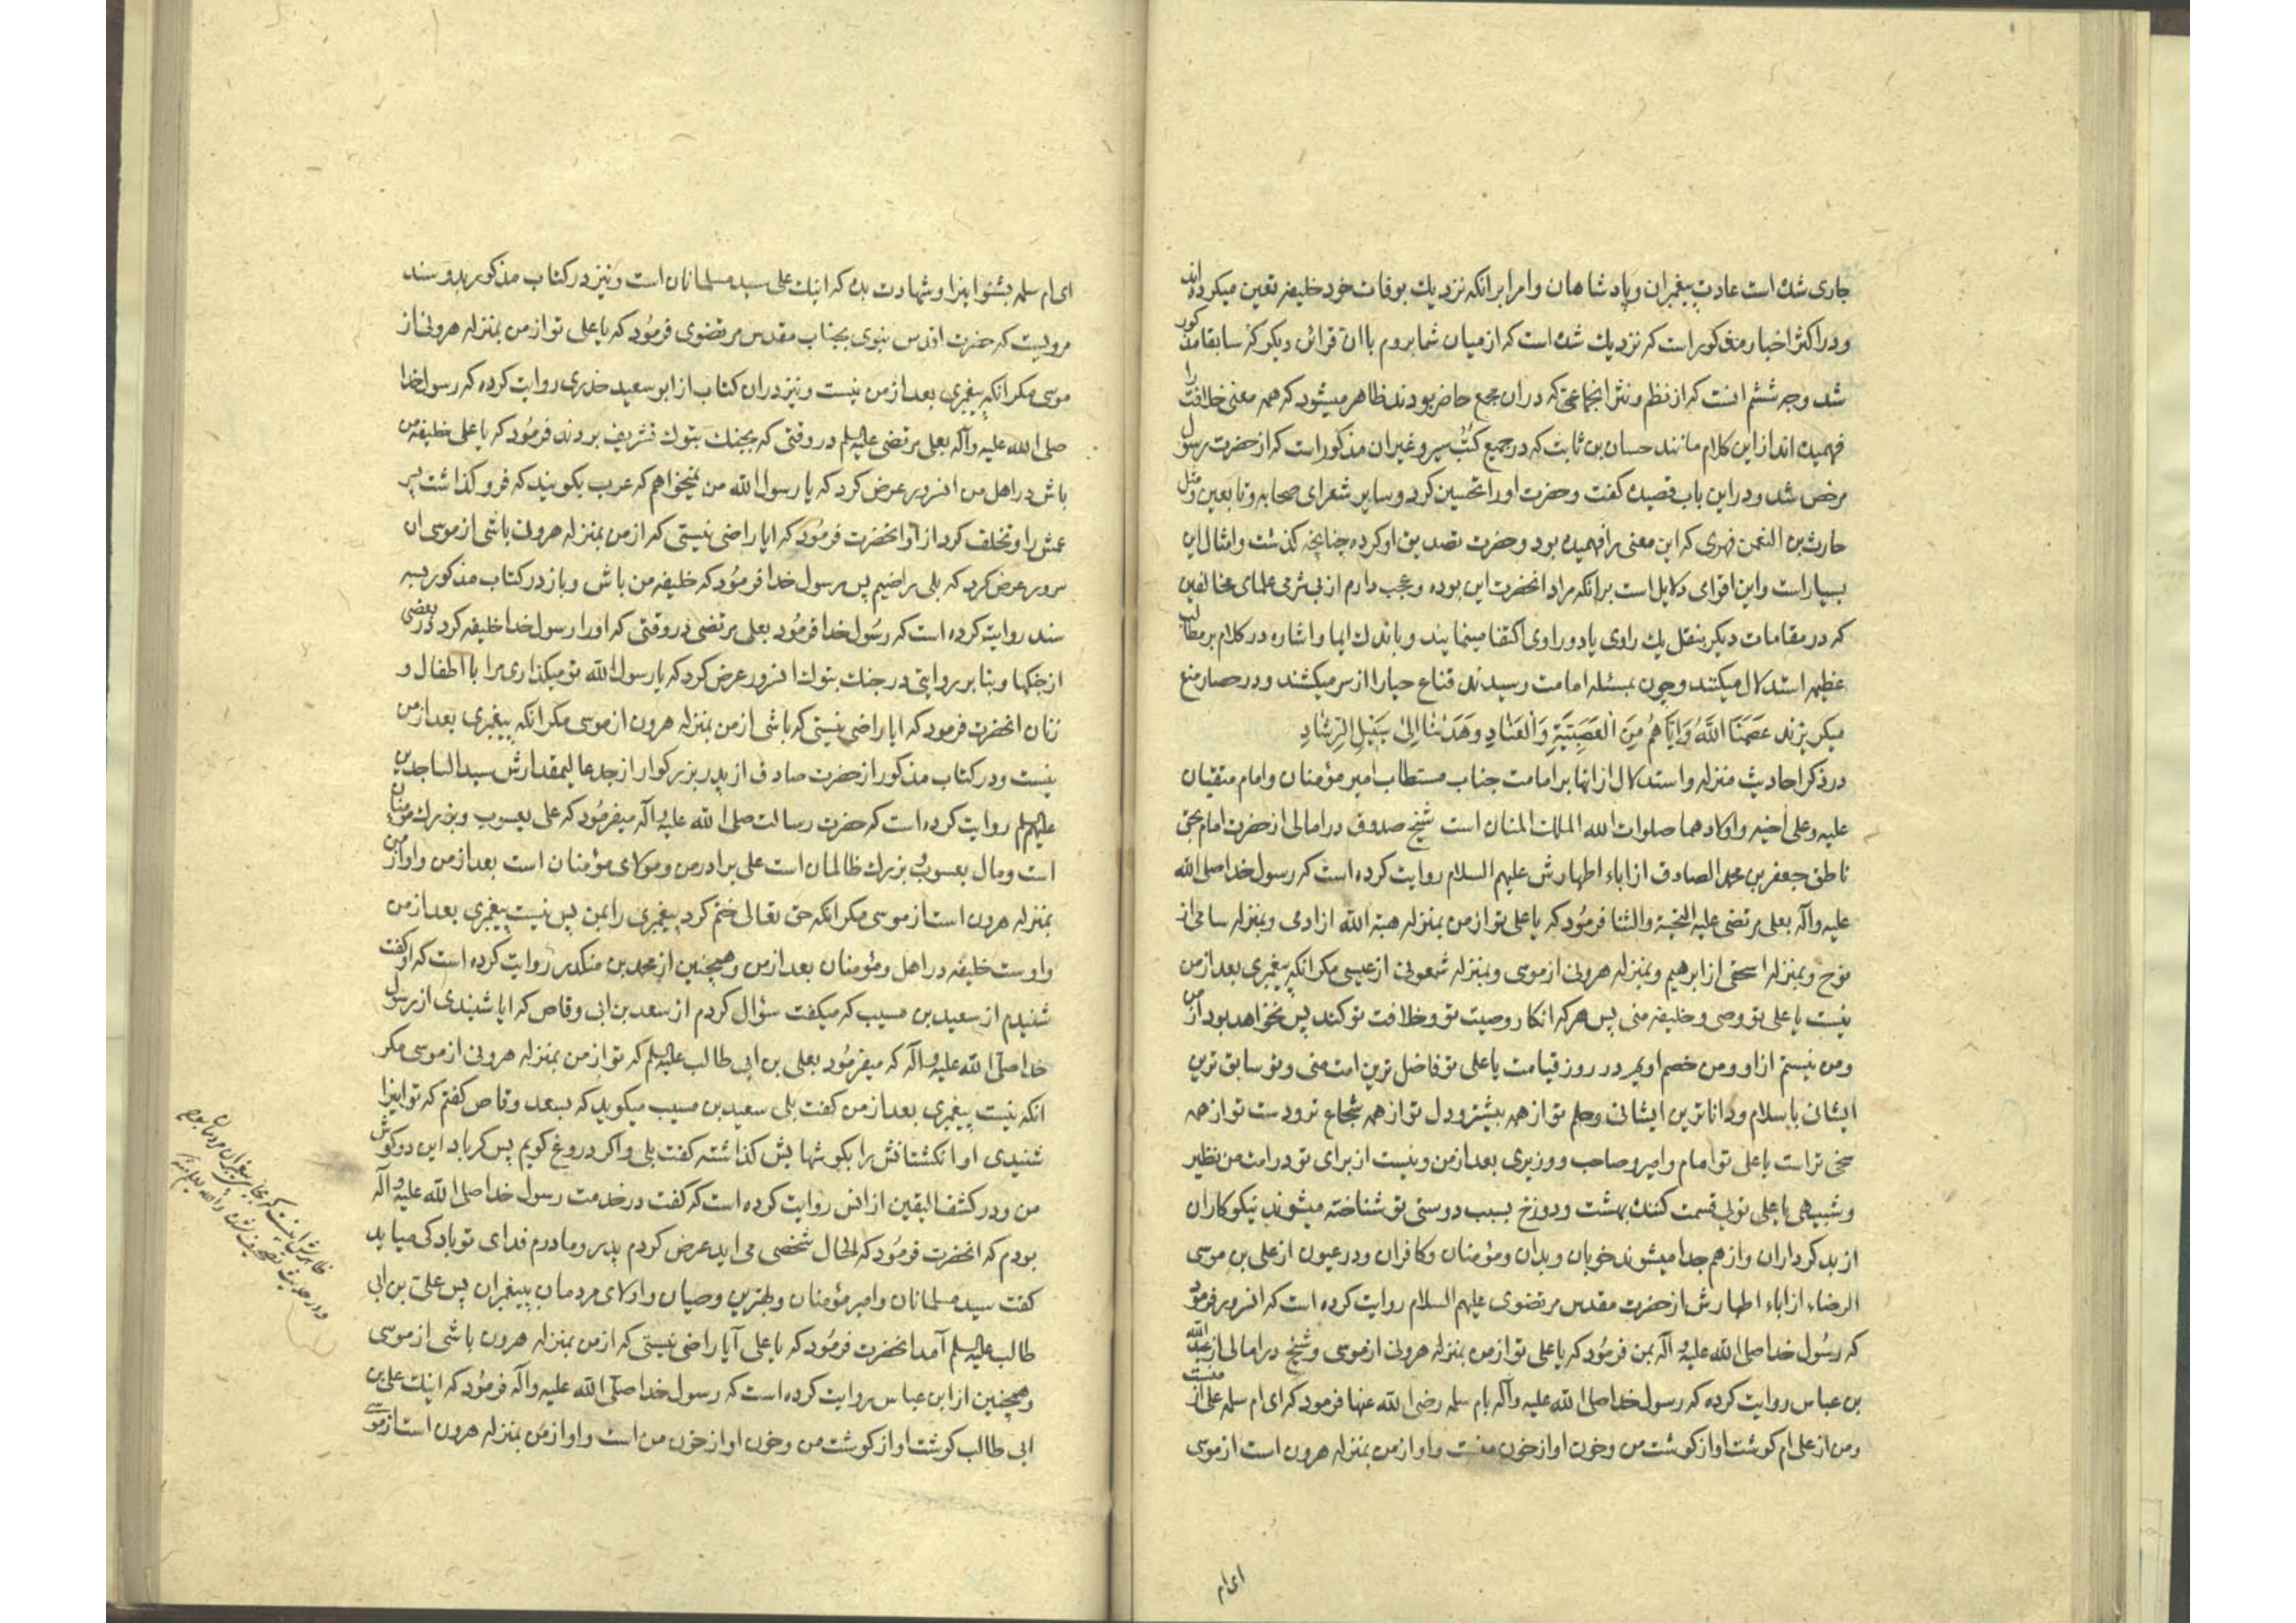 جاری شده است عادت پیغمبران و پادشاهان و امرا بر انکه نزدیك بوفات خود خلیفه تعین میکرده اند
و در اکثر اخبار مذکور است که نزدیك شده است که از میان شما بروم با ان قرائن دیکر که سابقا مذکور
شد وجه ششم انست که از نظم و نثر انجماعتی که در ان مجمع حاضر بودند ظاهر میشود که همه معنی خلافت را
فهمیده اند از این کلام مانند حسان بن ثابت که در جمیع کتب سیر و غیر ان مذکور است که از حضرت رسول
مرخص شد و در این باب قصیده کفت و حضرت او را تحسین کرد و سایر شعرای صحابه و تابعین و مثل
حارث بن النعمن فهری که این معنی را فهمیده بود و حضرت تصدیق او کرده چنانچه کذشت و امثال این
بسیار است و این اقوای دلایل است بر انکه مراد انحضرت این بوده و عجب دارم از بی شرمی علمای مخالفین
که در مقامات دیکر بنقل یك راوی یا دو راوی اکتفا مینمایند و باندك ایما و اشاره در کلام بر مطالب
عظیمه استدلال میکنند و چون بمسئله امامت رسیدند قناع حیا را از سر میکشند و در حصار منع
میکریزند عَصَمَنَا اللّهُ وَاِیّاهُم مِنَ الْعَصَبِیَّةِ وَالْعِنٰادِ وَهَدٰنٰا اِلیٰ سَبیلِ الرَّشٰادِ
در ذکر احادیث منزله و استدلال از انها بر امامت جناب مستطاب امیر مؤمنان و امام متقیان
علیه و علی اخیه و اولادهما صلوات الله الملك المنان است شیخ صدوق در امالی از حضرت امام بحق
ناطق جعفر بن محمد الصادق از اباء اطهارش علیهم السلام روایت کرده است که رسول خدا صلی الله
علیه و آله بعلی مرتضی علیه التحیة والثنا فرمود که یا علی تو از من بمنزله هبة الله از ادمی و بمنزله سامی از
نوح و بمنزله اسحق از ابرهیم و بمنزله هرونی از موسی و بمنزله شمعونی از عیسی مکر انکه پیغمبری بعد از من
نیست یا علی تو وصی و خلیفه منی پس هر که انکار وصیت تو و خلافت تو کند پس نخواهد بود از من
و من نیستم از او و من خصم اویم در روز قیامت یا علی تو فاضل ترین امت منی و تو سابق ترین
ایشان باسلام و داناترین ایشانی وحلم تو از همه بیشتر و دل تو از همه شجاع تر و دست تو از همه
سخی تر است یا علی تو امام و امیر و صاحب و وزیری بعد از من و نیست از برای تو در امت من نظیر
و شبیهی یا علی توئی قسمت کننده بهشت و دوزخ بسبب دوستی تو شناخته میشوند نیکوکاران
از بدکرداران و از هم جدا میشوند خوبان و بدان و مؤمنان و کافران و در عیون از علی بن موسی
الرضاء از اباء اطهارش از حضرت مقدس مرتضوی علیهم السلام روایت کرده است که انسرور فرمود
که رسول خدا صلی الله علیه و آله بمن فرمود که یا علی تو از من بمنزله هرونی از موسی و شیخ در امالی از عبد الله
بن عباس روایت کرده که رسول خدا صلی الله علیه و آله بام سلمه رضی الله عنها فرمود که ای ام سلمه علی از منست
و من از علی ام کوشت او از کوشت من و خون او از خون منست و او از من بمنزله هرون است از موسی
ای ام
ای ام سلمه بشنو اینرا و شهادت بده که اینك علی سید مسلمانان است و نیز در کتاب مذکور بدو سند
مرویست که حضرت اقدس نبوی بجناب مقدس مرتضوی فرمود که یا علی تو از من بمنزله هرونی از
موسی مکر انکه پیغمبری بعد از من نیست و نیز در ان کتاب از ابو سعید خدری روایت کرده که رسول خدا
صلی الله علیه و آله بعلی مرتضی علیه السلم در وقتی که بجنك تبوك تشریف بردند فرمود که یا علی خلیفه من
باش در اهل من انسرور عرض کرد که یا رسول الله من نمیخواهم که عرب بکویند که فرو کذاشت پسر
عمش را و تخلف کرد از او انحضرت فرمود که ایا راضی نیستی که از من بمنزله هرون باشی از موسی ان
سرور عرض کرد که بلی راضیم پس رسول خدا فرمود که خلیفه من باش و باز در کتاب مذکور بسه
سند روایت کرده است که رسول خدا فرمود بعلی مرتضی در وقتی که او را رسول خدا خلیفه کرد در بعضی
از جنکها و بنا بر روایتی در جنك تبوك انسرور عرض کرد که یا رسول الله تو میکذاری مرا با اطفال و
زنان انحضرت فرمود که ایا راضی نیستی که باشی از من بمنزله هرون از موسی مکر انکه پیغمبری بعد از من
نیست و در کتاب مذکور از حضرت صادق از پدر بزرکوار از جد عالیمقدارش سید الساجدین
علیهم السلم روایت کرده است که حضرت رسالت صلی الله علیه و آله میفرمود که علی یعسوب و بزرك مؤمنان
است و مال یعسوب و بزرك ظالمان است علی برادر من و مولای مؤمنان است بعد از من و او از من
بمنزله هرون است از موسی مکر انکه حق تعالی ختم کرد پیغمبری را بمن پس نیست پیغمبری بعد از من
و اوست خلیفه در اهل و مؤمنان بعد از من و همچنین از محمد بن منکدر روایت کرده است که او کفت
شنیدم از سعید بن مسیب که میکفت سؤال کردم از سعد بن ابی وقاص که ایا شنیدی از رسول
خدا صلی الله علیه و آله که میفرمود بعلی بن ابی طالب علیه السلم که تو از من بمنزله هرونی از موسی مکر
انکه نیست پیغمبری بعد از من کفت بلی سعید بن مسیب میکوید که بسعد وقاص کفتم که تو اینرا
شنیدی او انکشتانش را بکوشهایش کذاشته کفت بلی و اکر دروغ کویم پس کر باد این دو کوش
من و در کشف الیقین از انس روایت کرده است که کفت در خدمت رسول خدا صلی الله علیه و آله
بودم که انحضرت فرمود که الحال شخصی می اید عرض کردم پدر و مادرم فدای تو باد کی میاید
کفت سید مسلمانان و امیر مؤمنان و بهترین وصیان و اولای مردمان پیغمبران پس علی بن ابی
طالب علیه السلم آمد انحضرت فرمود که یا علی آیا راضی نیستی که از من بمنزله هرون باشی از موسی
و همچنین از ابن عباس روایت کرده است که رسول خدا صلی الله علیه و آله فرمود که اینك علی بن
ابی طالب کوشت او از کوشت من و خون او از خون من است و او از من بمنزله هرون است از موسی
ظاهرش انست که بجای پیغمبران مردمان بوده
و در حدیث تصحیف شده والله یعلم